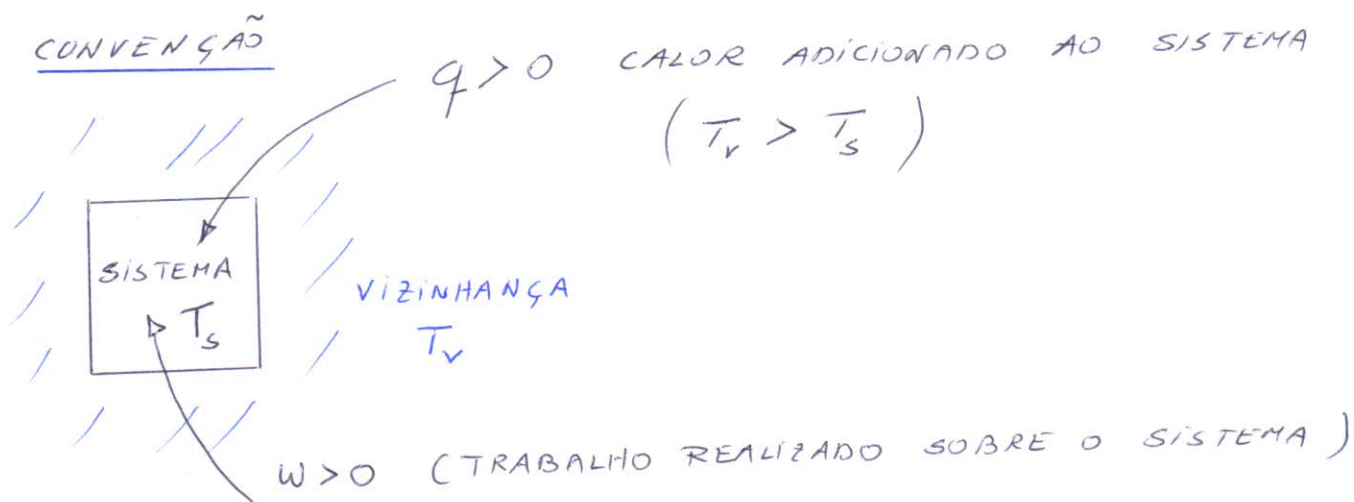 CONVENÇÃO
q > 0 CALOR ADICIONADO AO SISTEMA
(Tv > Ts)
SISTEMA
Ts
VIZINHANÇA
Tv
w > 0 (TRABALHO REALIZADO SOBRE O SISTEMA)